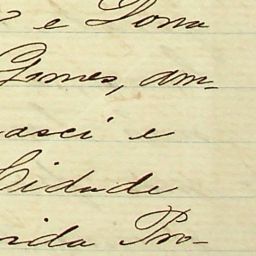 e Dona
Gomes, am-
nasci e
Cidade
rida Pro-